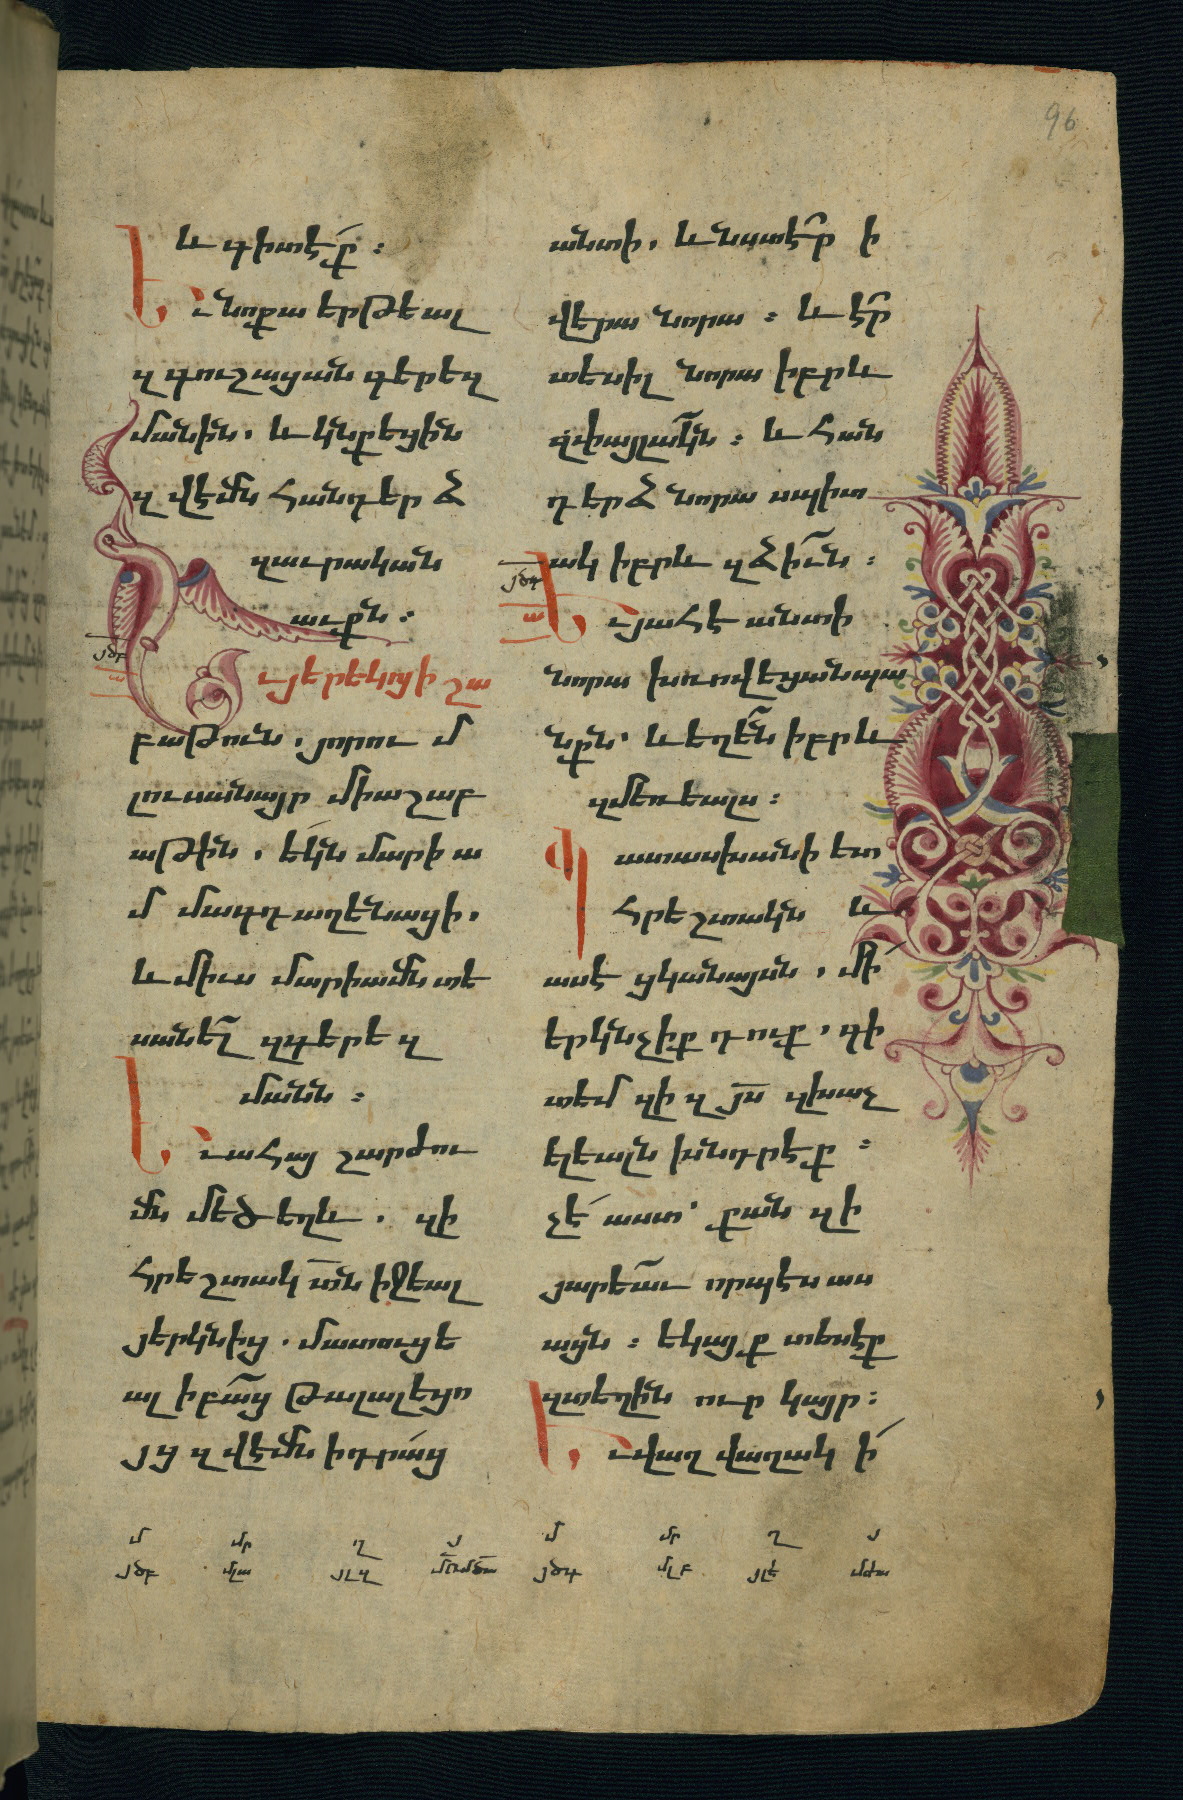 96
և գիտէք ։
Եւ նոքա երթեալ
զգուշացան գերեզ
մանին . և կնքեցին
զվէմն հանդերձ
զաւրական
աւքն ։
յծբ
ա
Եւ յերեկոյի շա
բաթուն . յորում
լուսանայր միաշաբ
աթին . եկն մարիա
մ մագդաղենացի .
և միւս մարիամն տե
սանել զգերեզ
մանն ։
Եւ ահայ շարժու
մն մեծ եղև . զի
հրեշտակ տն իջեալ
յերկնից . մատուցե
ալ ի բաց թաւալեցո
յց զվէմն ի դրաց
անտի . և նստէր ի
վերա նորա ։ և էր
տեսիլ նորա իբրև
զփայլակն ։ և հան
դերձ նորա սպիտ
ակ իբրև զձիւն ։
յծգ
ա
Եւ յահէ անտի
նորա խռովեցան պա
հպքն . և եղեն իբրև
զմեռեալս ։
Պատասխանի ետ
հրեշտակն և
ասէ ցկանայսն . մի
երկնչիք դուք . գի
տեմ զի զյս զխաչ
ելեալն խնդրէք ։
չէ աստ . քան զի
յարեաւ որպէս աս
ացն ։ եկայք տեսէք
զտեղին ուր կայր ։
Եւ վաղվաղակի
մ մր ղ յ մ մր ղ յ
յծբ մլա յլզ յծգ մլբ յլէ